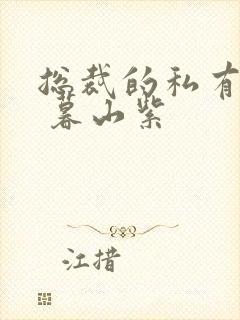 总裁的私有
暮山紫
江措